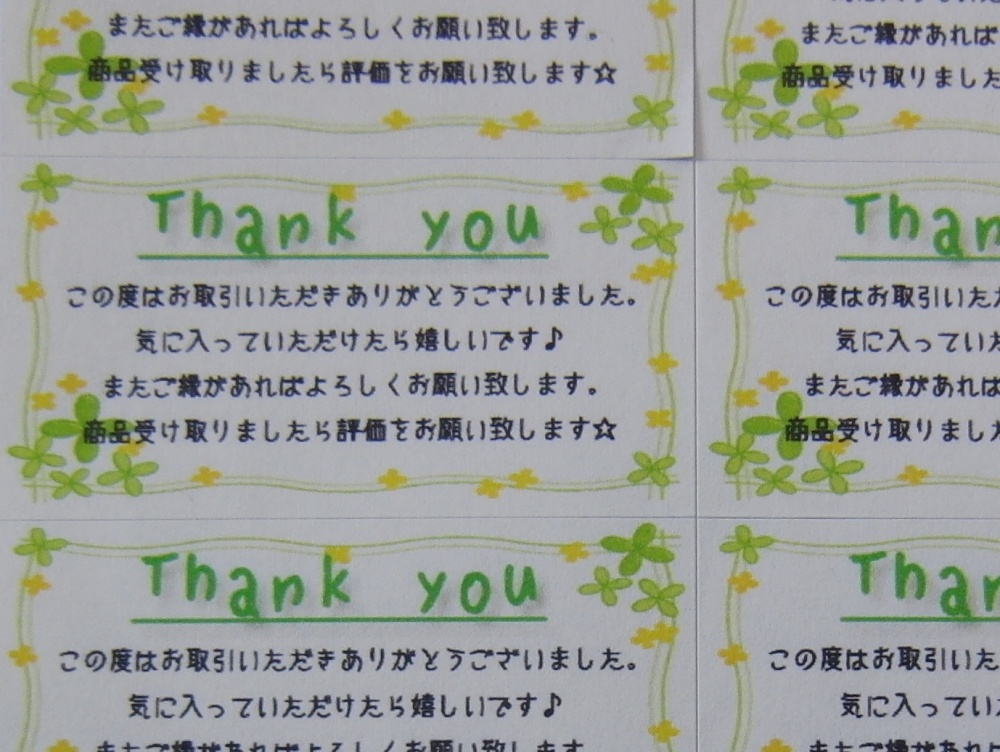 またご縁があればよろしくお願い致します。
商品受け取りましたら評価をお願い致します☆
またご縁があれば
商品受け取りました
Thank you
この度はお取引いただきありがとうございました。
気に入っていただけたら嬉しいです♪
またご縁があればよろしくお願い致します。
商品受け取りましたら評価をお願い致します☆
Than
この度はお取引いた
気に入っていた
またご縁があれば
商品受け取りました
Thank you
この度はお取引いただきありがとうございました。
気に入っていただけたら嬉しいです♪
またご縁があればよろしくお願い致します。
Than
この度はお取引いた
気に入ってい
またご縁があれば